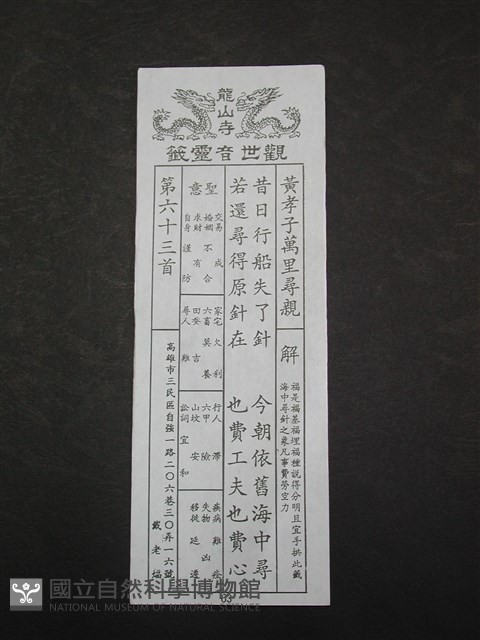 龍山寺
觀世音靈籤
黃孝子萬里尋親
解
福是福基福埋福種說得分明且宜手拱此籤
海中尋針之象凡事費勞空力
昔日行船失了針 今朝依舊海中尋
若還尋得原針在 也費工夫也費心
聖意
交易 成
婚姻 不合
求財 有
自身 謹防
家宅 欠利
六畜 莫養
田蚕 吉
尋人 難
行人 滯
六甲 險
山坟 安
訟詞 宜和
疾病 難
失物 凶
移徙
第六十三首
高雄市三民區自強一路二〇六巷三〇弄一六號
戴老福
63
國立自然科學博物館
NATIONAL MUSEUM OF NATURAL SCIENCE